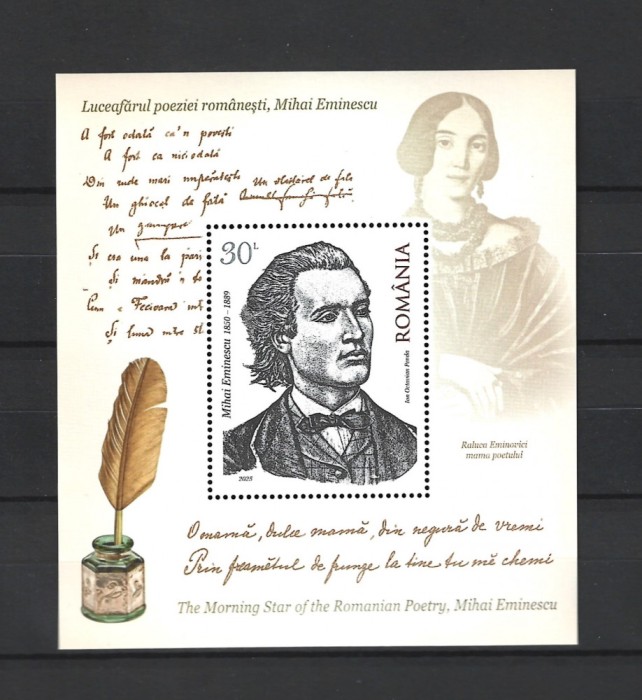 Luceafărul poeziei românești, Mihai Eminescu
A fost odată ca'n povești
A fost ca niciodată
Din rude mari împărătești
Un ghiocel de fată
Un
Și era una la pari
Și mandră n
Cum e Fecioara intr
Și luna intre st
30L
ROMÂNIA
Mihai Eminescu 1850 - 1889
Ion Octavian Penda
2025
Raluca Eminovici
mama poetului
O mamă, dulce mamă, din negură de vremi
Prin freamătul de frunze la tine tu mĕ chemi
The Morning Star of the Romanian Poetry, Mihai Eminescu